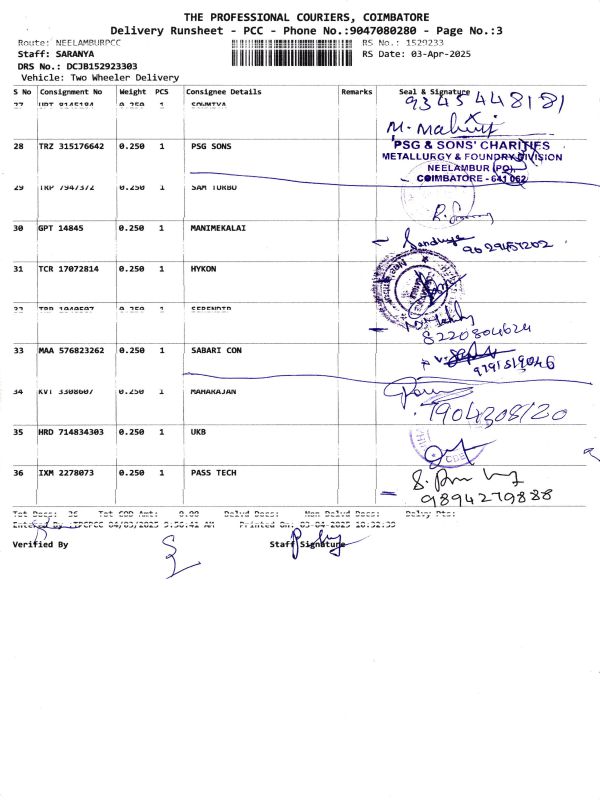 THE PROFESSIONAL COURIERS, COIMBATORE
Delivery Runsheet - PCC - Phone No.:9047080280 - Page No.:3
Route: NEELAMBURPCC RS No.: 1529233
Staff: SARANYA RS Date: 03-Apr-2025
DRS No.: DCJB152923303
Vehicle: Two Wheeler Delivery
S No Consignment No Weight PCS Consignee Details Remarks Seal & Signature
27 0.250 1 SOWMIYA 9345448181
28 TRZ 315176642 0.250 1 PSG SONS
PSG & SONS' CHARITIES
METALLURGY & FOUNDRY DIVISION
NEELAMBUR (PO),
COIMBATORE - 641 062
29 TRP 7947372 0.250 1 SAM TURBO
30 GPT 14845 0.250 1 MANIMEKALAI
31 TCR 17072814 0.250 1 HYKON
0.250 1 SERENDIB
8220804624
33 MAA 576823262 0.250 1 SABARI CON
9791519046
34 KVT 3308607 0.250 1 MAHARAJAN
35 HRD 714834303 0.250 1 UKB
36 IXM 2278073 0.250 1 PASS TECH
9894279888
Tot Docs: 36 Tot COD Amt: 0.00 Delvd Docs: Non Delvd Docs: Delvy Pts:
Verified By Staff Signature